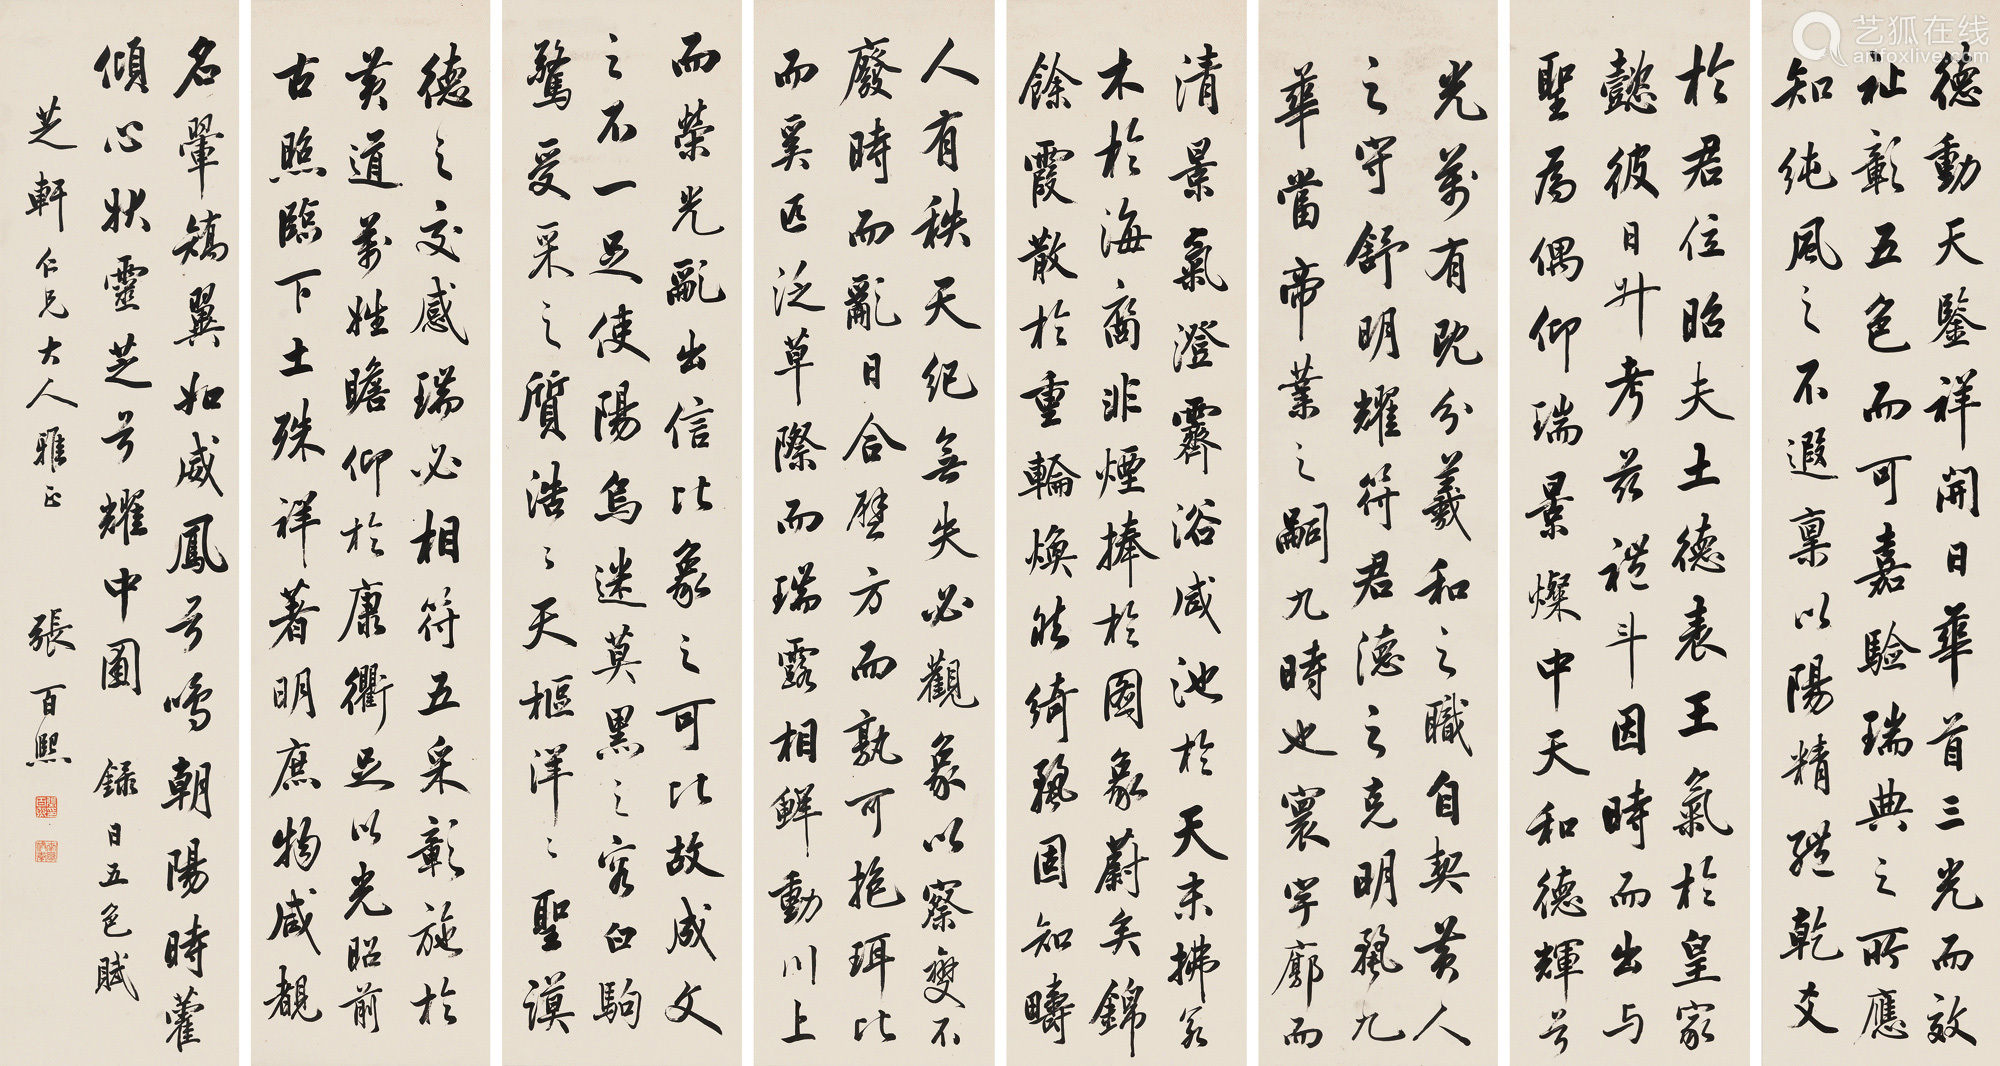 德動天鑒祥開日華首三光而效
祉彰五色而可嘉驗瑞典之所應
知純風之不遐稟以陽精體乾爻
於君位昭夫土德表王氣於皇家
懿彼日升考茲禮斗因時而出與
聖為偶仰瑞景燦中天和德輝兮
光萬有既分羲和之職自契黃人
之守舒明耀符君德之克明麗九
華當帝業之嗣九時也寰宇廓而
清景氣澄霽浴咸池於天末拂若
木於海裔非煙捧於圓象蔚矣錦
餘霞散於重輪煥然綺麗固知疇
人有秩天紀無失必觀象以察變不
廢時而亂日合璧方而孰可抱珥比
而奚匹泛草際而瑞露相鮮動川上
而榮光亂出信比象之可比故成文
之不一足使陽烏迷莫黑之容白駒
驚受采之質浩〻天樞洋〻聖謨
德之交感瑞必相符五采彰施於
黃道萬姓瞻仰於康衢足以光昭前
古照臨下土殊祥著明庶物咸覩
名翬矯翼如威鳳兮鳴朝陽時藿
傾心狀靈芝兮耀中圃 錄日五色賦
芝軒仁兄大人雅正 張百熙
艺狐在线
artfoxlive.com